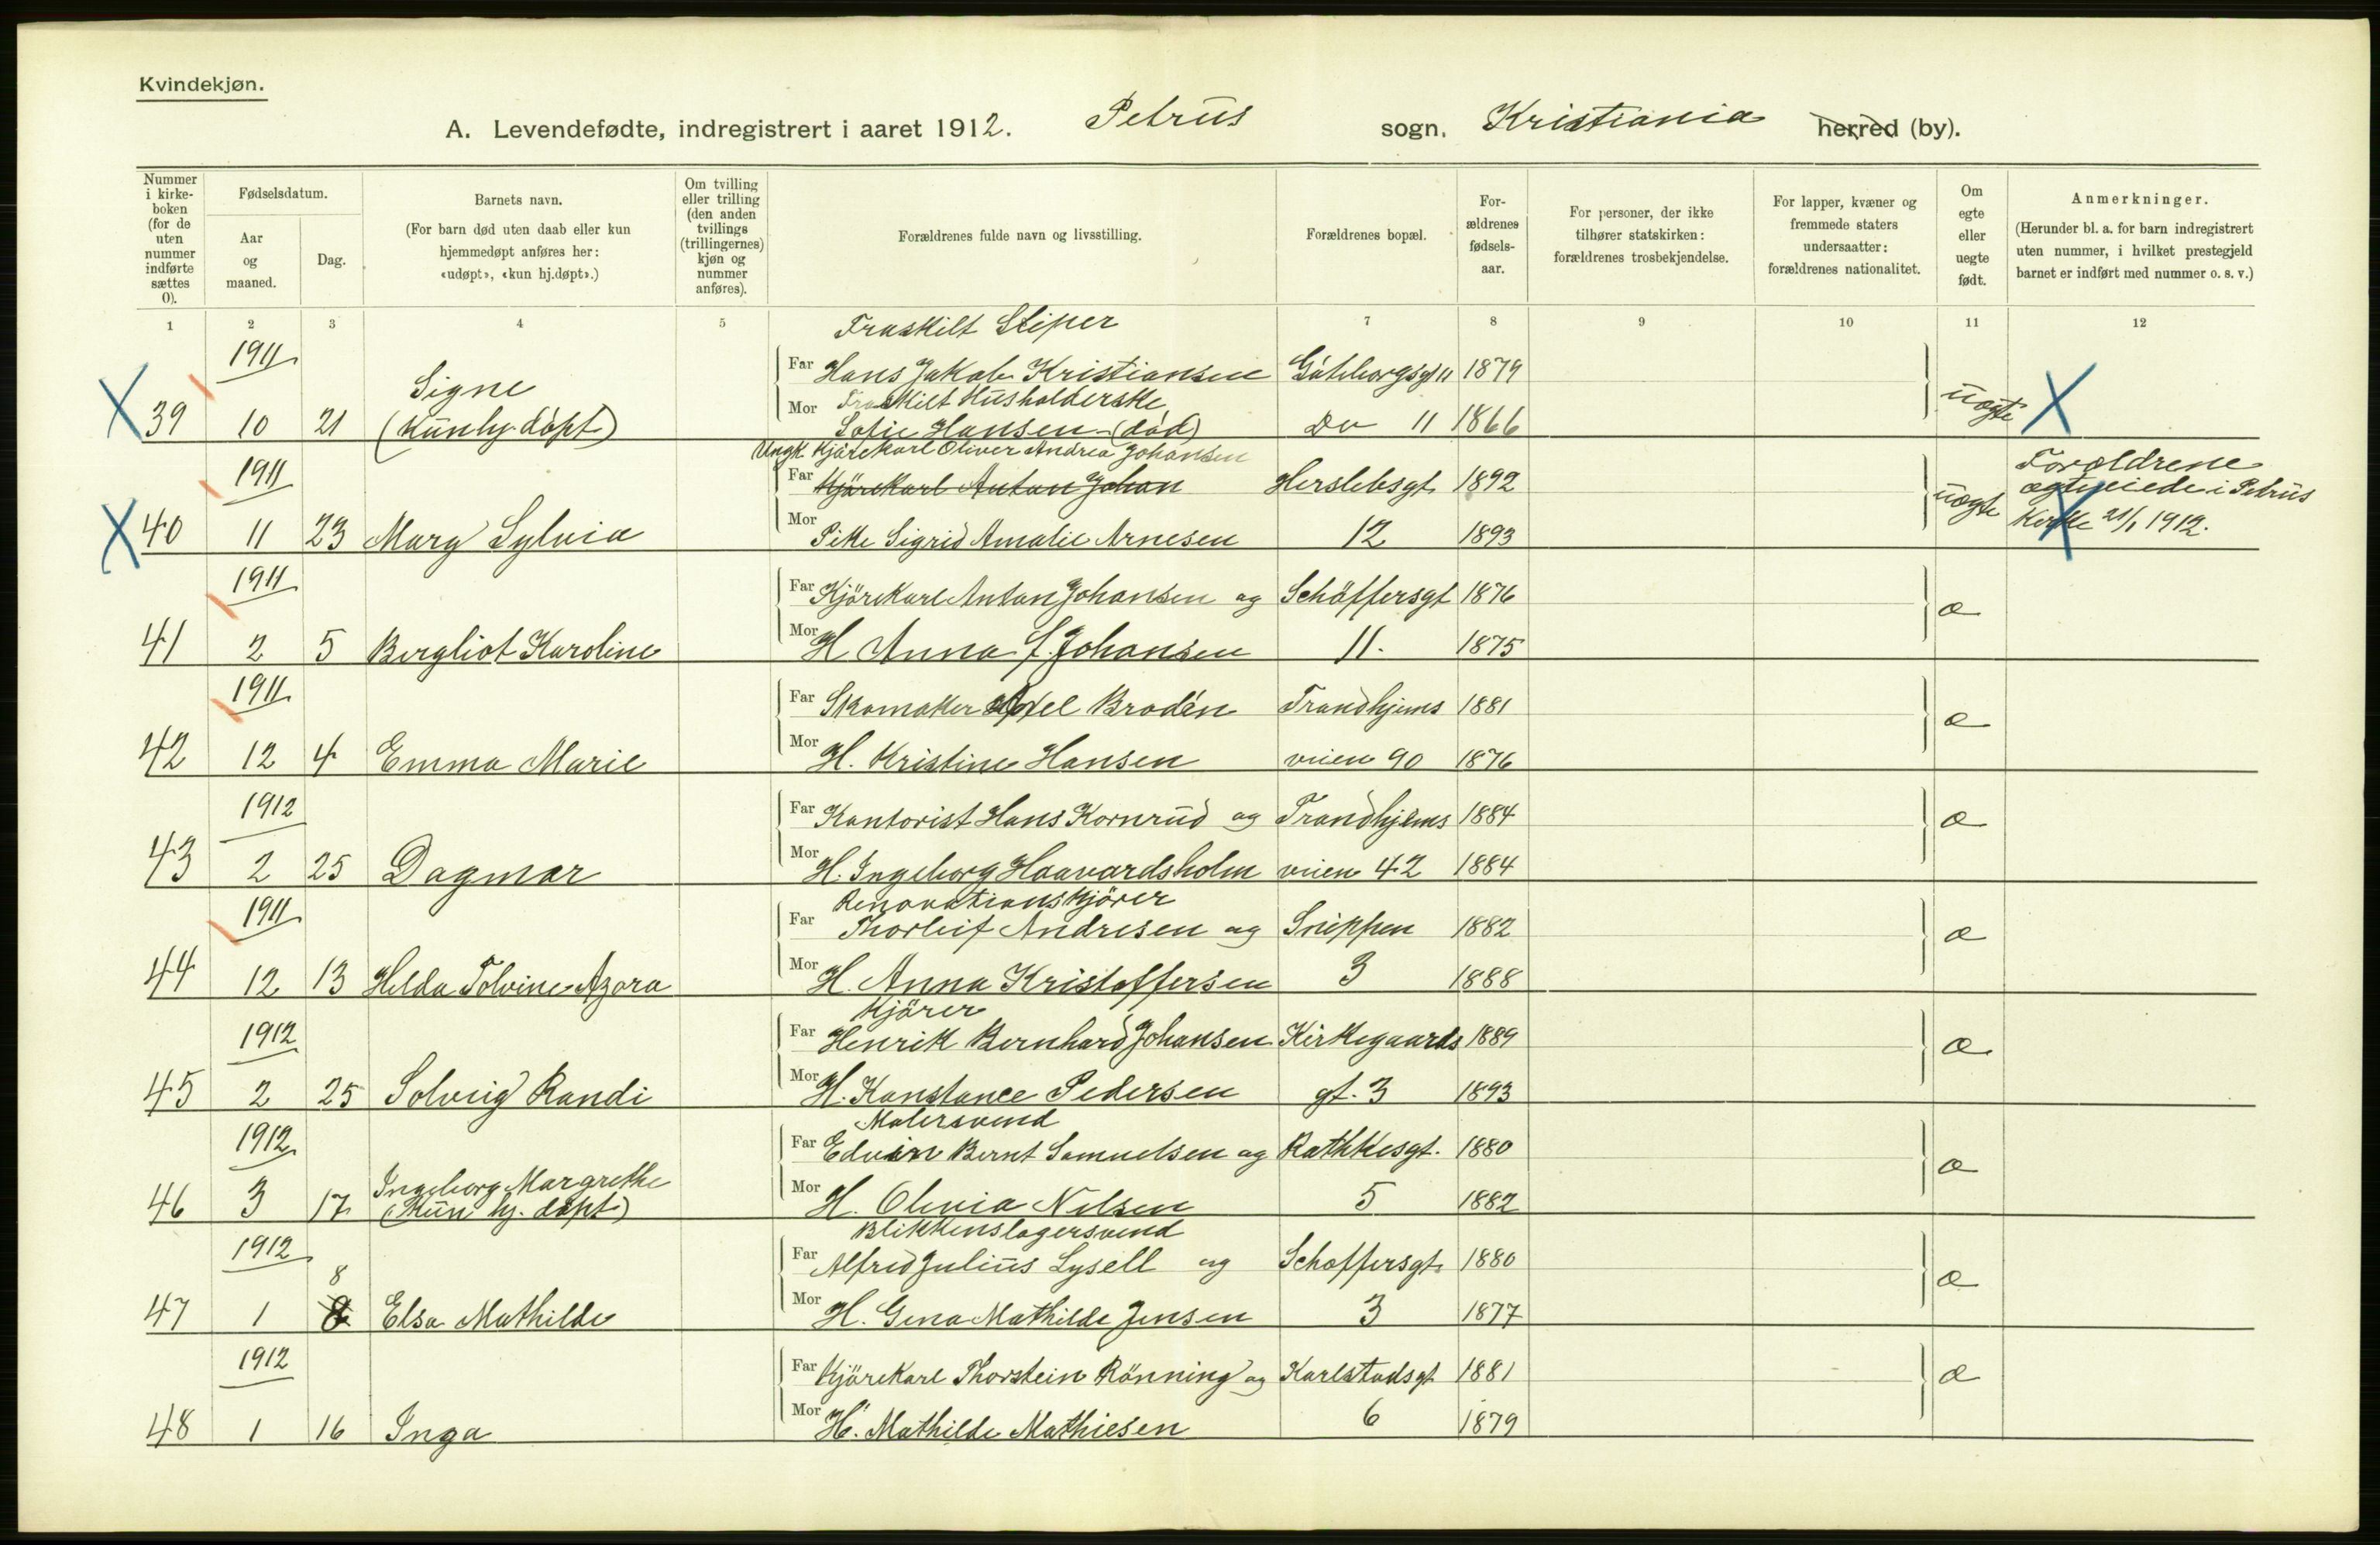 Kvindekjøn.
A. Levendefødte, indregistrert i aaret 1912. Petrus sogn, Kristiania herred (by).
Nummer i kirkeboken (for de uten nummer indførte sættes 0).
Fødselsdatum.
Aar og maaned.
Dag.
Barnets navn.
(For barn død uten daab eller kun hjemmedøpt anføres her: «udøpt», «kun hj.døpt».)
Om tvilling eller trilling (den anden tvillings (trillingernes) kjøn og nummer anføres).
Forældrenes fulde navn og livsstilling.
Forældrenes bopæl.
Forældrenes fødselsaar.
For personer, der ikke tilhører statskirken: forældrenes trosbekjendelse.
For lapper, kvæner og fremmede staters undersaatter: forældrenes nationalitet.
Om egte eller uegte født.
Anmerkninger.
(Herunder bl. a. for barn indregistrert uten nummer, i hvilket prestegjeld barnet er indført med nummer o. s. v.)
1 2 3 4 5 7 8 9 10 11 12
Fraskilt Sliper
1911 Far Hans Jakob Kristiansen Göteborgsgt 11 1879
Signe
Mor Fraskilt Husholderske
39 10 21 (kun hj. døpt) Sofie Hansen (död) Do 11 1866 uegte
Ungk. Kjörekarl Oliver Andrea Johansen
1911 Far Kjörekarl Anton Johan Herslebsgt. 1892
40 11 23 Mary Sylvia Mor Pike Sigrid Amalie Arnesen 12 1893 uegte
Forældrene
egteviede i Petrus
Kirke 21/1 1912.
1911 Far Kjörekarl Anton Johansen og Schäffersgt 1876
41 2 5 Bergliot Karoline Mor H Anna f. Johansen 11. 1875 æ
1911 Far Skomaker Axel Brodén Trondhjems 1881
42 12 4 Emma Marie Mor H. Kristine Hansen veien 90 1876 æ
1912 Far Kontorist Hans Kornrud og Trondhjems 1884
43 2 25 Dagmar Mor H. Ingeborg Haavardsholm veien 42 1884 æ
Renovationskjörer
1911 Far Thorleif Andresen og Sneppen 1882
44 12 13 Helda Tolvine Azora Mor H. Anna Kristoffersen 3 1888 æ
Kjörer
1912 Far Henrik Bernhard Johansen Kirkegaards 1889
45 2 25 Solveig Randi Mor H. Konstance Pedersen gt. 3 1893 æ
Malersvend
1912 Far Edvin Bernt Samuelsen og Rathkesgt. 1880
Ingeborg Margrethe
46 3 17 (kun hj. døpt) Mor H. Olevia Nelsen 5 1882 æ
Blikkenslagersvend
1912 Far Alfred Julius Lysell og Schoffersgt. 1880
8
47 1 Elsa Mathilde Mor H. Gena Mathilde Jensen 3 1877 æ
1912 Far Kjörekarl Thorstein Rönning og Karlstadsgt 1881
48 1 16 Inga Mor H. Mathilde Mathiesen 6 1879 æ